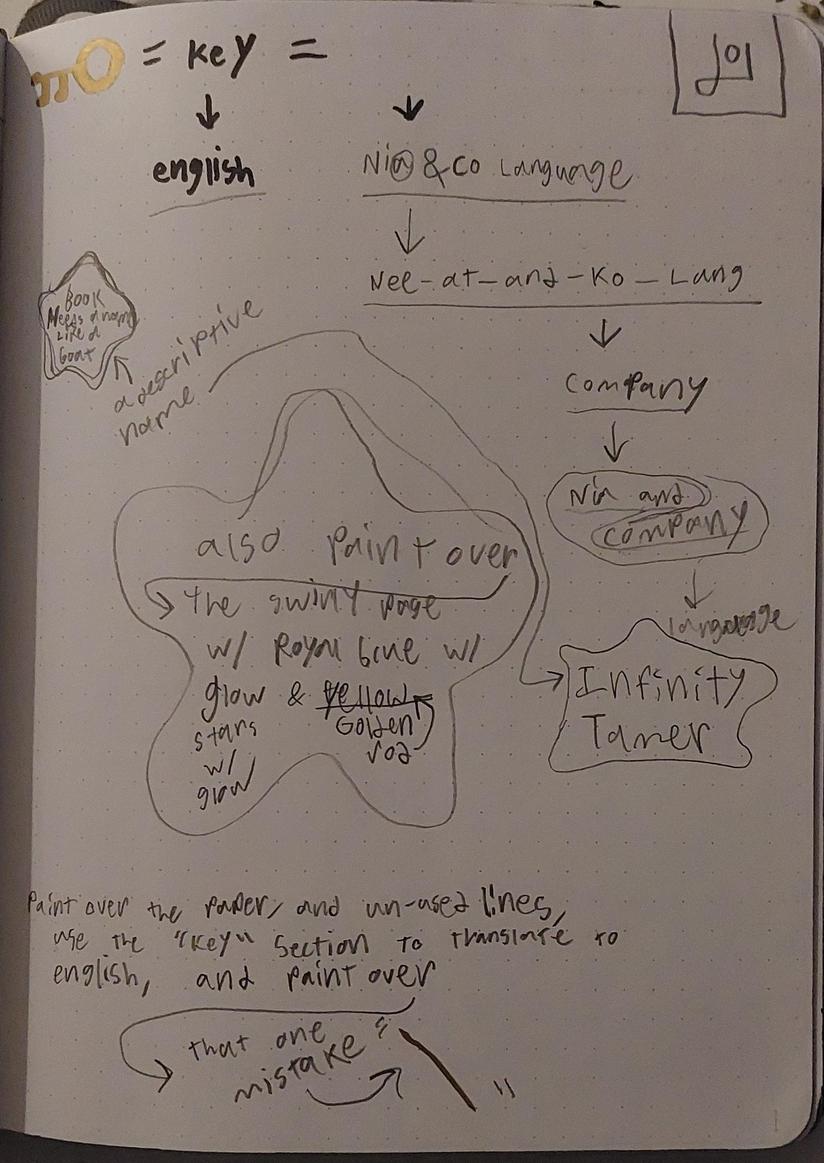 = Key =
english
Ni@ & Co Language
Nee-at-and-Ko-Lang
Company
Nia and
company
language
Infinity
Tamer
BOOK
Needs a name
Like a
Goat
a descriptive
name
also paint over
the swirly page
w/ Royal blue w/
glow & yellow
stars Golden
w/ rod
glow
Paint over the paper, and un-used lines,
use the "Key" section to translate to
english, and paint over
that one
mistake " "